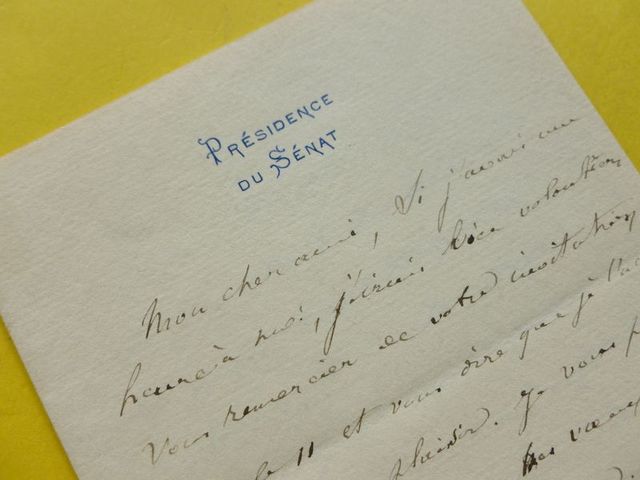 PRÉSIDENCE
DU SÉNAT
Mon cher ami, Si j'avais une
heure à moi, j'irais bien volontiers
vous remercier de votre invitation
le 11 et vous dire que je l'ac
plaisir. Je vous p
vœux